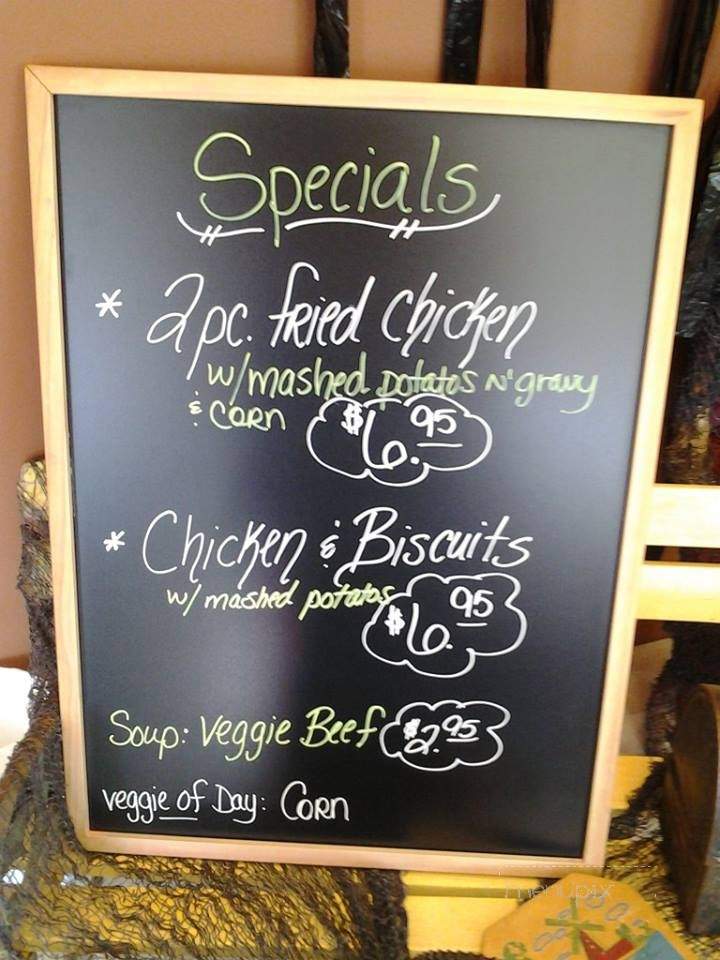 Specials
* 2pc. fried Chicken
w/mashed potatos N' gravy
& CORN $6.95
* Chicken & Biscuits
w/ mashed potatos $6.95
Soup: Veggie Beef $2.95
veggie of Day: CORN
menupix